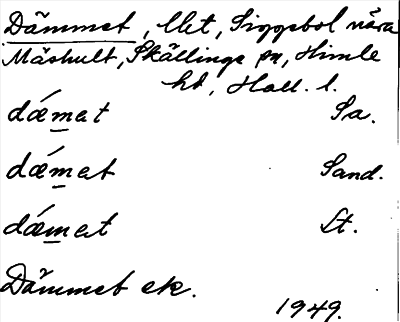 Dämmet, llet, Siggebol nära
Mäshult, Skällinge sn, Himle
hd, Hall. l.
dǽmat Sa.
dǽmat Sand.
dǽmat Lt.
Dämmet ek.
1949.